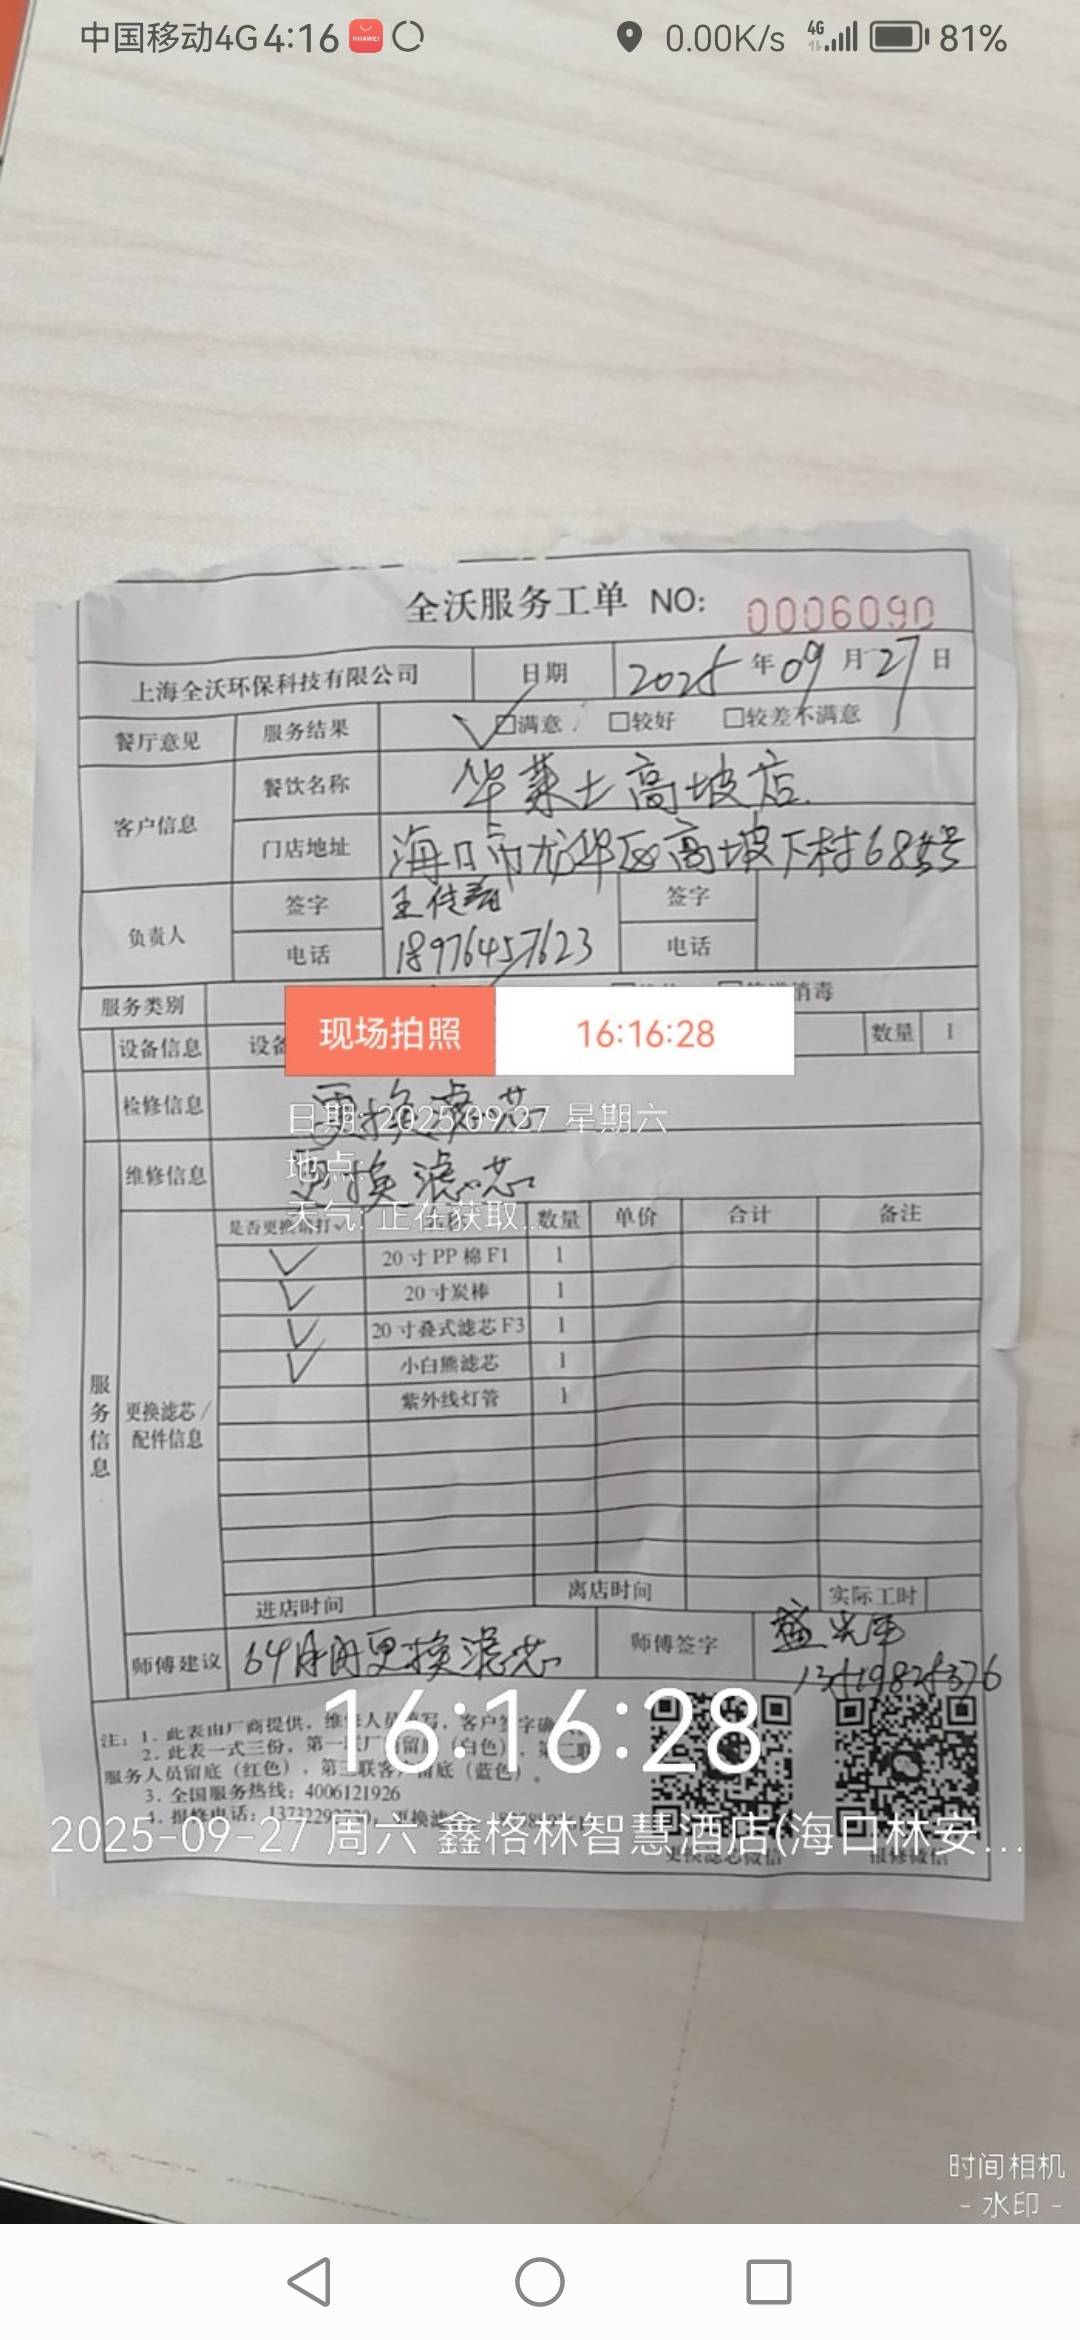 中国移动4G 4:16 HUAWEI 0.00K/s 4G 81%
全沃服务工单 NO: 0006090
上海全沃环保科技有限公司 日期 2025年09月27日
餐厅意见 服务结果 □满意 □较好 □较差不满意
客户信息 餐饮名称 华莱士高坡店
门店地址 海口市龙华区高坡下村68号
负责人 签字 王佳 签字
电话 18976457623 电话
服务类别 消毒
现场拍照 16:16:28
设备信息 设备 数量 1
检修信息 更换滤芯
日期: 2025.09.27 星期六
地点:
维修信息 更换滤芯
天气: 正在获取...
是否更换请打✓ 数量 单价 合计 备注
✓ 20寸PP棉F1 1
✓ 20寸炭棒 1
✓ 20寸叠式滤芯F3 1
✓ 小白熊滤芯 1
紫外线灯管 1
服务信息
更换滤芯/
配件信息
进店时间 离店时间 实际工时
师傅建议 6个月内更换滤芯 师傅签字
16:16:28
注: 1. 此表由厂商提供, 维修人员填写, 客户签字
2. 此表一式三份, 第一联厂商留底(白色), 第二联
服务人员留底(红色), 第三联客户留底(蓝色)。
3. 全国服务热线: 4006121926
4. 报修电话:
2025-09-27 周六 鑫格林智慧酒店(海口林安...
更换滤芯微信 报修微信
时间相机
- 水印 -